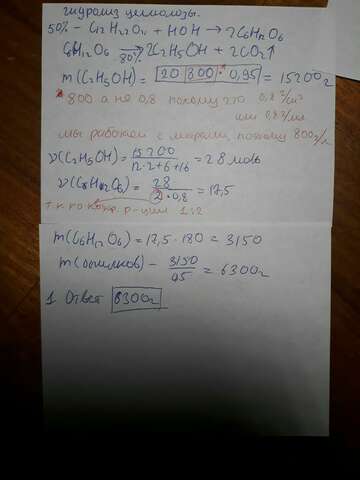 гидролиз целлюлозы.
50% - C12H22O11 + HOH → 2C6H12O6
C6H12O6 →80% 2C2H5OH + 2CO2↑
m(C2H5OH) = 20·800·0,95 = 15200г
*800 а не 0,8 потому что 0,8 г/см³
или 0,8 г/мл
мы работаем с литрами, поэтому 800 г/л
ν(C2H5OH) = 15200/12·2+6+16 = 28 моль
ν(C6H12O6) = 28/2·0,8 = 17,5
т.к. по коэф. р-ции 1:2
m(C6H12O6) = 17,5 · 180 = 3150
m(опилков) - 3150/45 = 6300г
1 Ответ 6300г